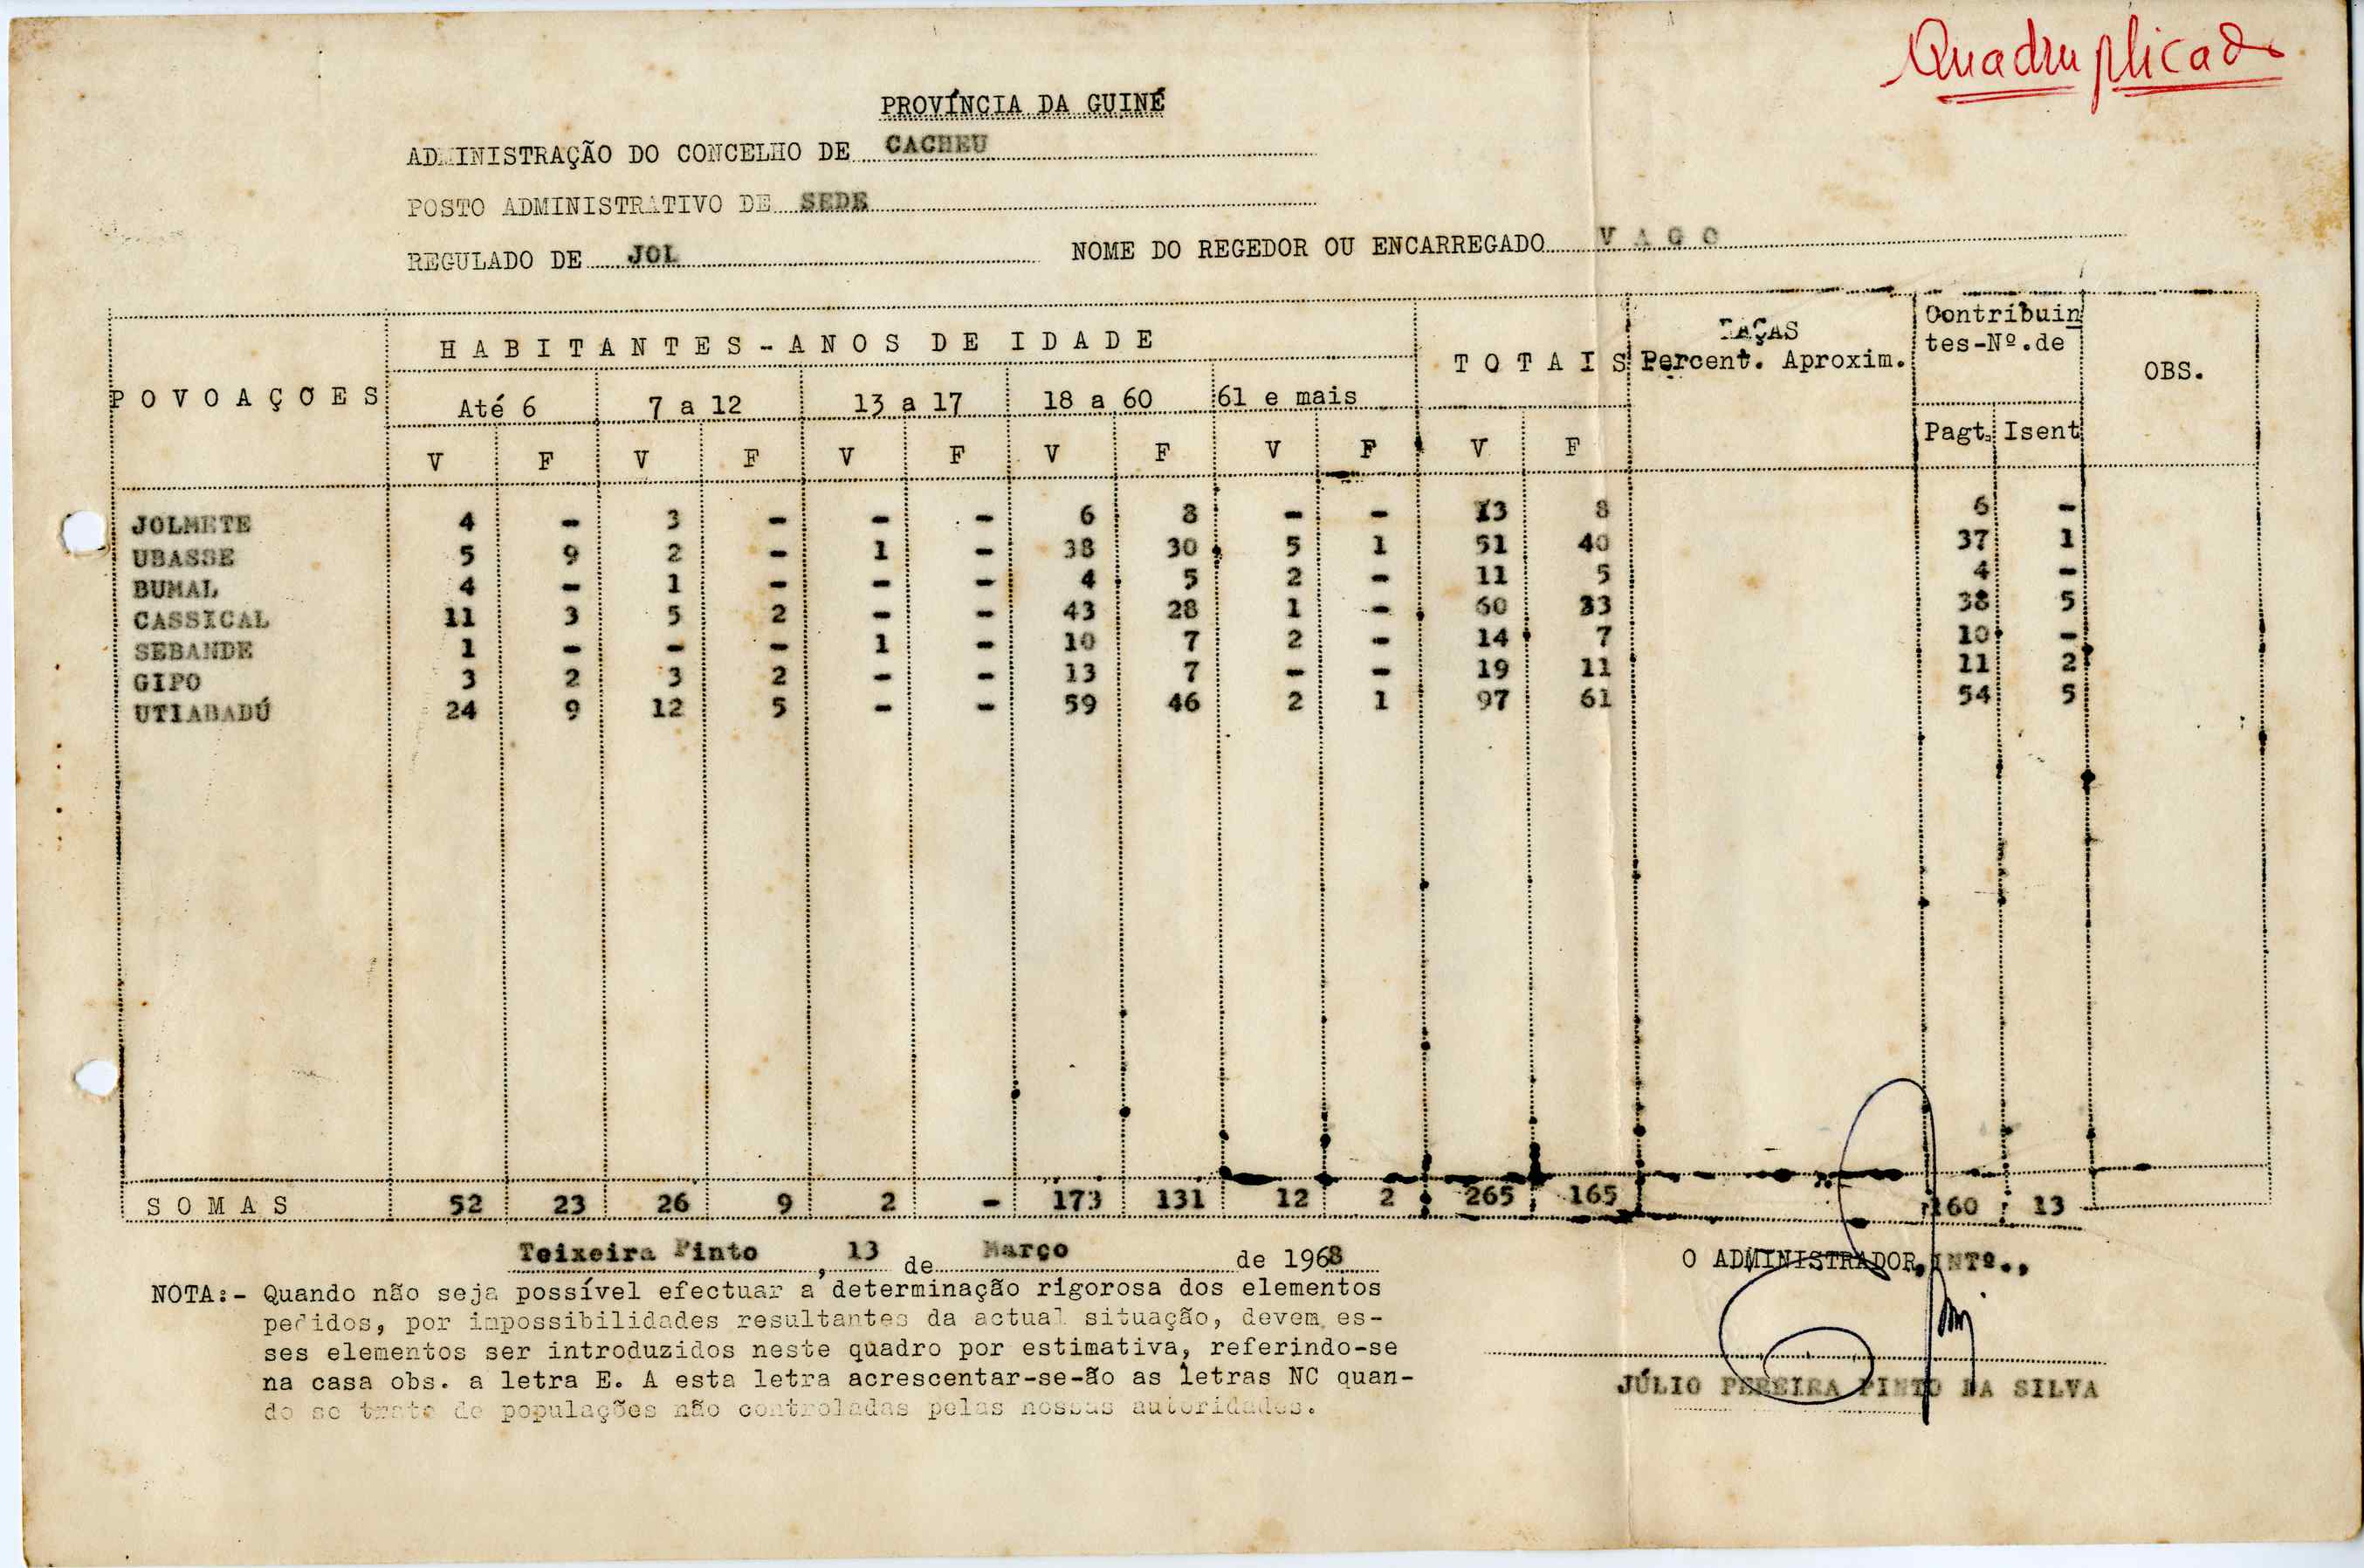 Quadruplicado
PROVÍNCIA DA GUINÉ
ADMINISTRAÇÃO DO CONCELHO DE CACHEU
POSTO ADMINISTRATIVO DE SEDE
REGULADO DE JOL NOME DO REGEDOR OU ENCARREGADO V A G O
POVOAÇÕES HABITANTES-ANOS DE IDADE TOTAIS RAÇAS Percent. Aproxim. Contribuin tes-Nº.de OBS.
Até 6 7 a 12 13 a 17 18 a 60 61 e mais
V F V F V F V F V F V F Pagt. Isent
JOLMETE 4 - 3 - - - 6 8 - - 13 8 6 -
UBASSE 5 9 2 - 1 - 38 30 5 1 51 40 37 1
BUMAL 4 - 1 - - - 4 5 2 - 11 5 4 -
CASSICAL 11 3 5 2 - - 43 28 1 - 60 33 38 5
SEBANDE 1 - - - 1 - 10 7 2 - 14 7 10 -
GIPO 3 2 3 2 - - 13 7 - - 19 11 11 2
UTIABADÚ 24 9 12 5 - - 59 46 2 1 97 61 54 5
SOMAS 52 23 26 9 2 - 173 131 12 2 265 165 160 13
Teixeira Pinto, 13 de Março de 1968
O ADMINISTRADOR, INTº.,
NOTA:- Quando não seja possível efectuar a determinação rigorosa dos elementos
pedidos, por impossibilidades resultantes da actual situação, devem es-
ses elementos ser introduzidos neste quadro por estimativa, referindo-se
na casa obs. a letra E. A esta letra acrescentar-se-ão as letras NC quan-
do se trate de populações não controladas pelas nossas autoridades.
JÚLIO PEREIRA PINTO DA SILVA